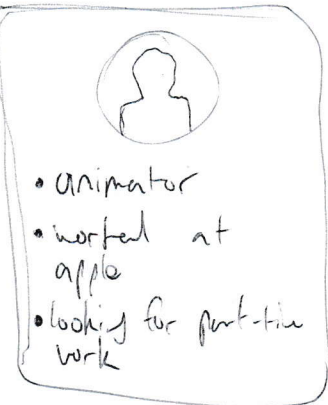 • animator
• worked at
apple
• looking for part-time
work